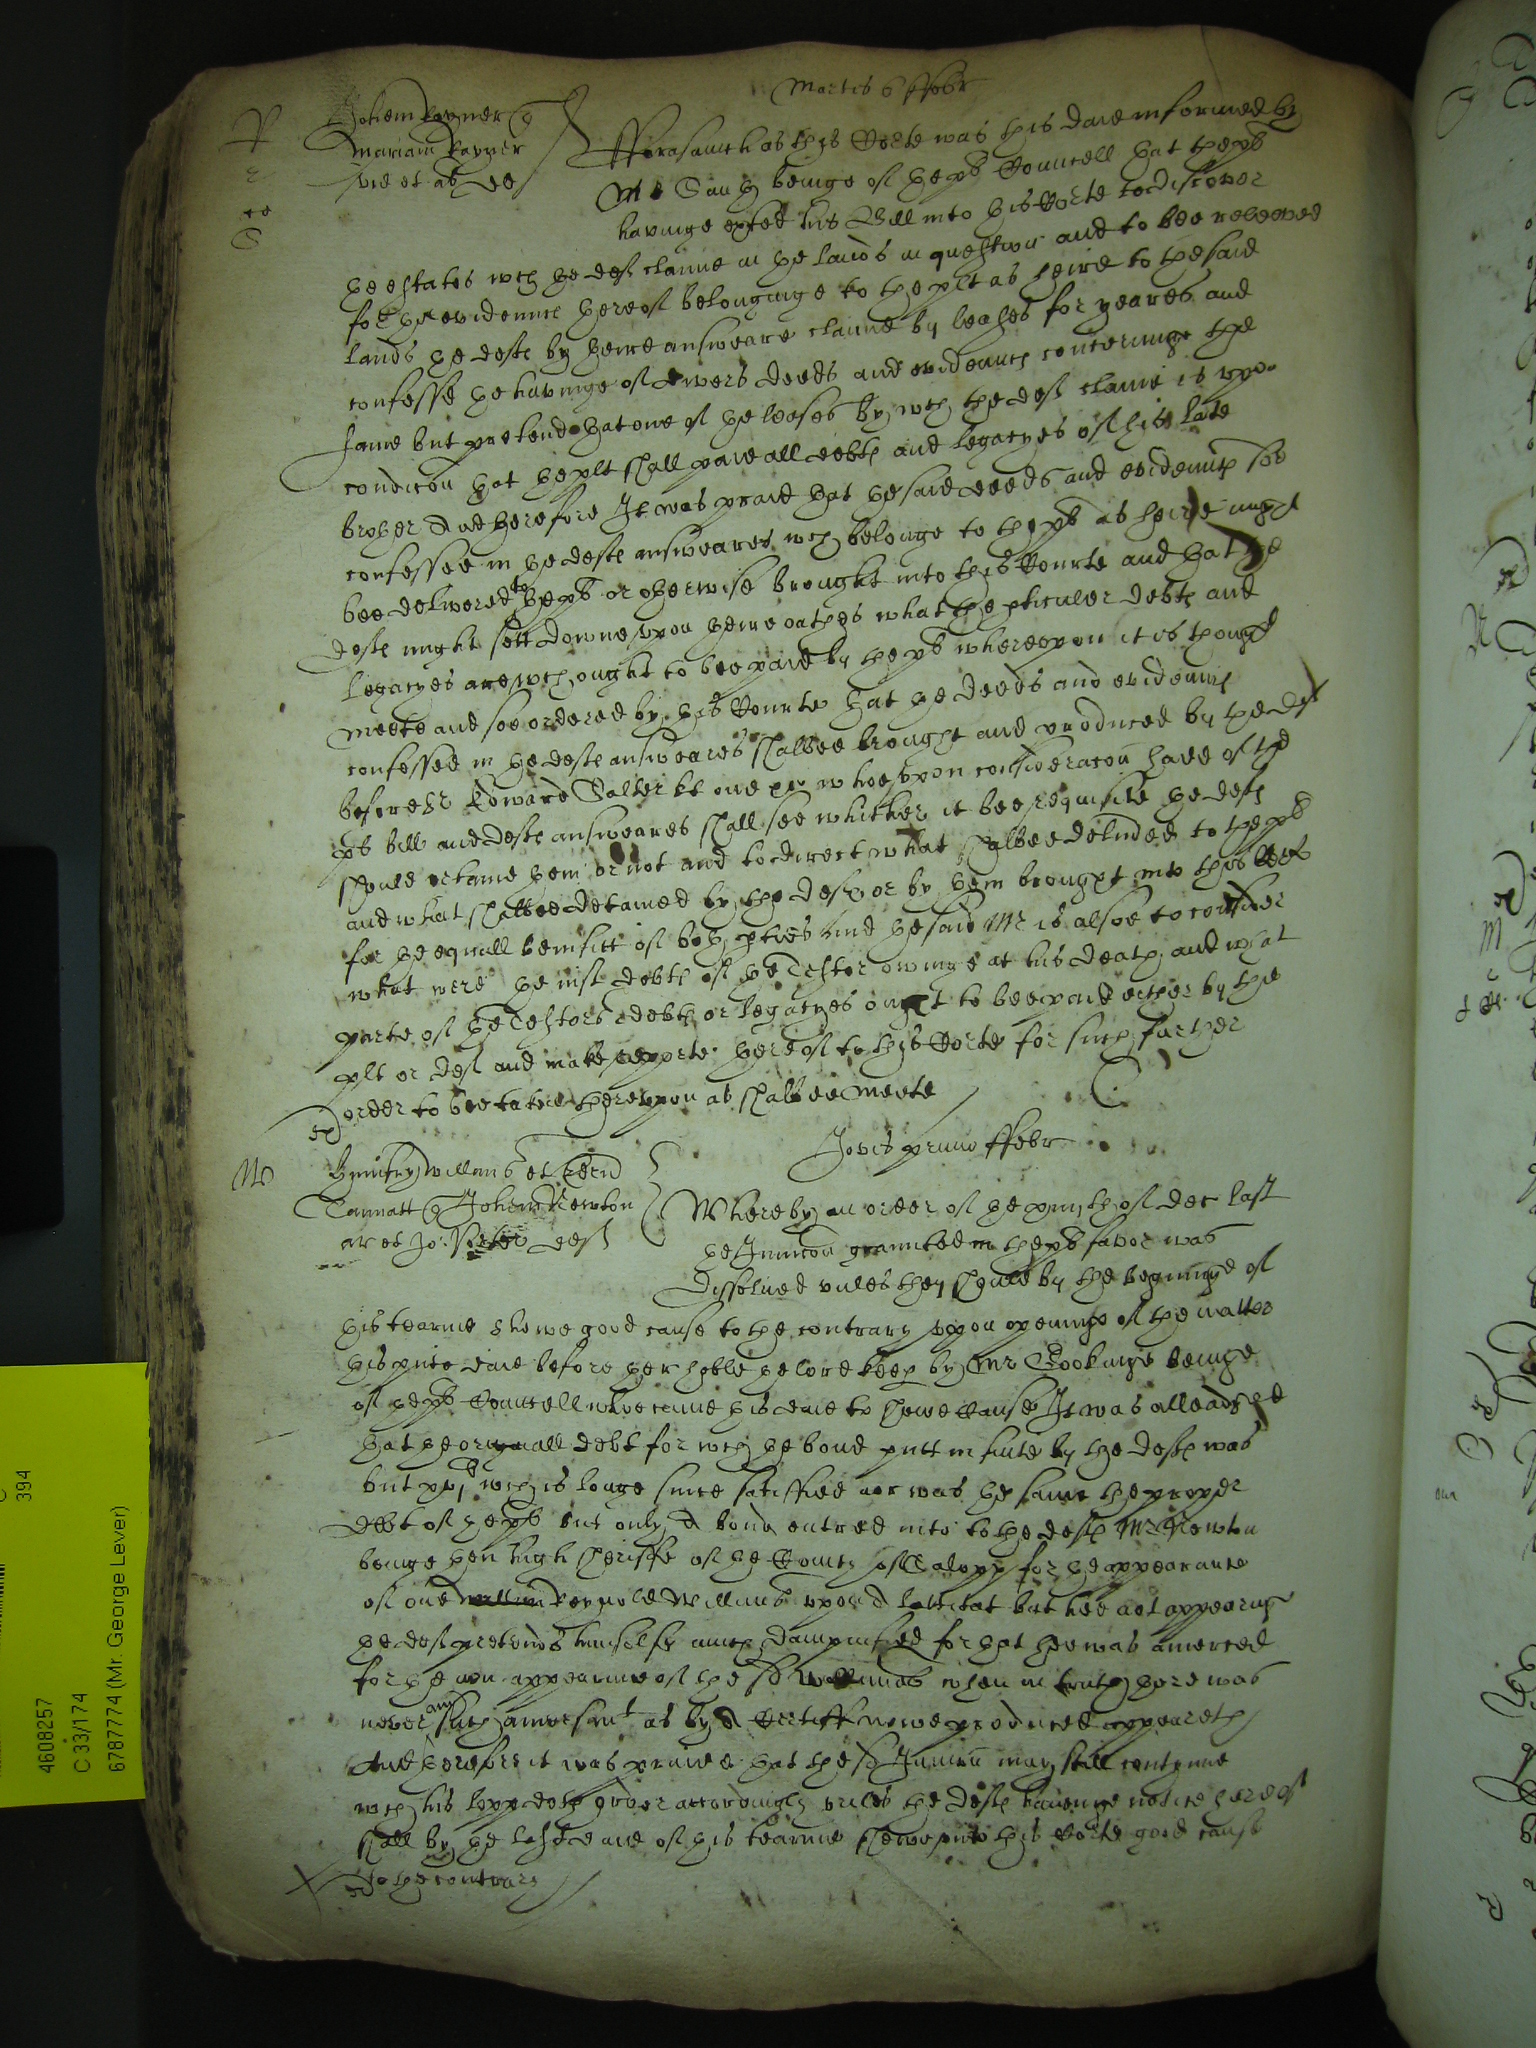 Martis 6 ffebr
Johem Rayner q
Mariam Rayner
vid et al def
R
Fforasmuch as this Corte was this daie informed by
Mr beinge of the pls Councell that the pl
havinge exhited his Bill into this Corte to discover
the estates wch the def clame in the lands in question and to bee releeved
for the evidennce thereof belonginge to the plt as heire to the said
lands the defts by theire answeare clame by leases for yeares and
confesse the havinge of divers deeds and evidences concerninge the
same but pretend that one of the leases by wch the def clame is vpon
condicon that the plt shall paie all debts and legacyes of his late
brother And therefore It was praid that the said deeds and evidences soe
confessed in the defts answeares wch belonge to the pl as heire might
bee delivered to the pl or otherwise brought into this Courte and that the
defts might sett downe vpon theire oathes what the pticuler debts and
legacyes are wch ought to bee paid by the pl wherevpon it is thought
meete and soe ordered by this Courte that the deeds and evidences
confessed in the defts answeares shalbee brought and produced by the def
before Sr Edward Salter kt one &c whoe vpon consideracon had of the
pls bill and defts answeares shall see whither it bee requisite the defts
should retaine them or not and to direct what shalbee delivered to the pl
and what shalbee detained by the defts or by them brought into this Corte
for the equall benifitt of both pties And the said Mr is alsoe to consider
what were the just debts of the Testor owinge at his death and what
parte of the Testors debts or legacyes ought to bee paid either by the
plt or def and make reporte thereof to this Corte for such further
order to bee taken therevpon as shalbee meete
ex
Jovis primo ffebr
W
Humfry Willms et
Tannatt q Johem Newton
ar et Jo: def
Whereby an order of the of Dec last
the Iniuncon graunted in the pls favor was
dissolued vnles they should by the begininge of
this tearme showe good cause to the contrary vpon openinge of the matter
this pnte daie before the right hoble the lord keep by Mr beinge
of the pls Councell whoe came this daie to shewe Cause It was alleadged
that the originall debt for wch the bond putt in suite by the defts was
but wch is longe since satisfied nor was the same the proper
debt of the pls but only A bond entred into to the defts Mr Newton
beinge then high Sheriffe of the County of Salopp for the appearance
of one Reynold Willms vpon A lattitat but hee not appearing
the def pretends himselfe much dampnified for that hee was amerced
for the non appearance of the sd Willims when in truth there was
never any such amersmt as by A Certiff nowe produced appeareth
And therefore it was praied that the sd Iniuncon may still contynue
wch his lopp doth order accordingly vnles the defts havinge notice hereof
shall by the last daie of this tearme shewe vnto this Corte good cause
to the contrary
ex
394
4608257
C 33/174
6787774 (Mr. George Lever)